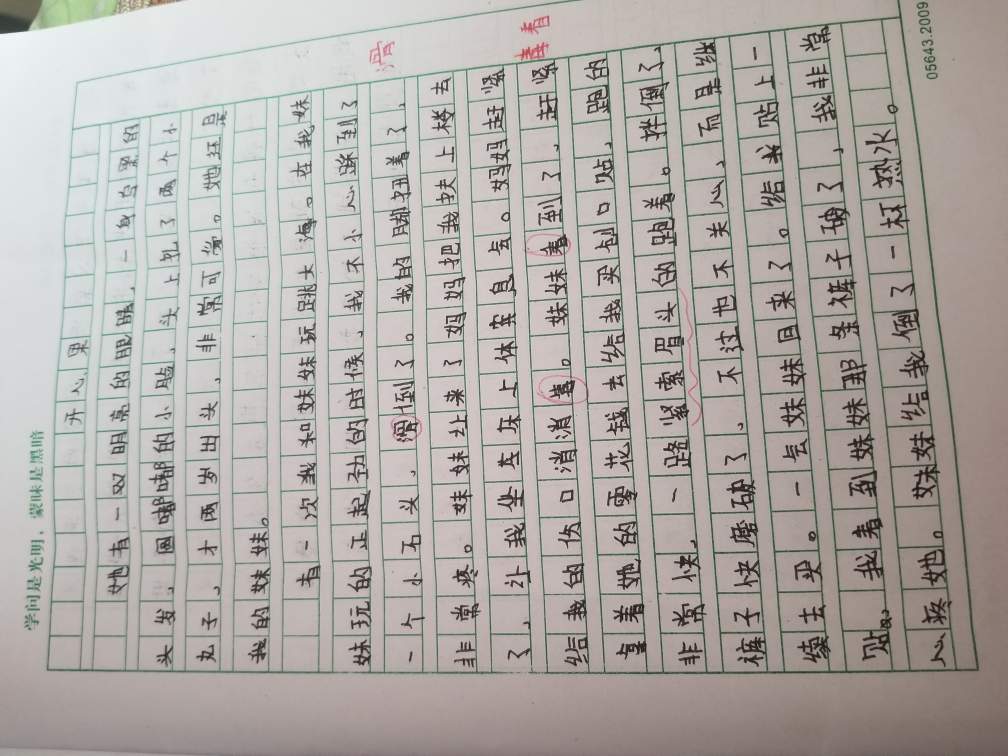 学问是光明，蒙昧是黑暗
开心果
她有一双明亮的眼睛，一身乌黑的
头发，圆嘟嘟的小脸，头上扎了两个小
丸子，才两岁出头，非常可爱。她还是
我的妹妹。
有一次我和妹妹玩跳大海。在我妹
妹玩的正起劲的时候，我不小心踩到了
一个小石头，滑倒了。我的脚扭着了，
滑
非常疼。妹妹赶来了妈妈把我扶上楼去
了，让我坐在床上休息去。妈妈赶紧
春着
给我的伤口消消毒。妹妹看到了，赶紧
拿着她的零花钱去给我买创口贴，跑的
非常快，一路紧索眉头的跑着。拌倒了，
裤子快磨破了，不过也不关心，而是继
续去买。一会妹妹回来了。给我贴上一
贴。我看到妹妹那条裤子破了，我非常
心疼她。妹妹给我倒了一杯热水。
05643.2009